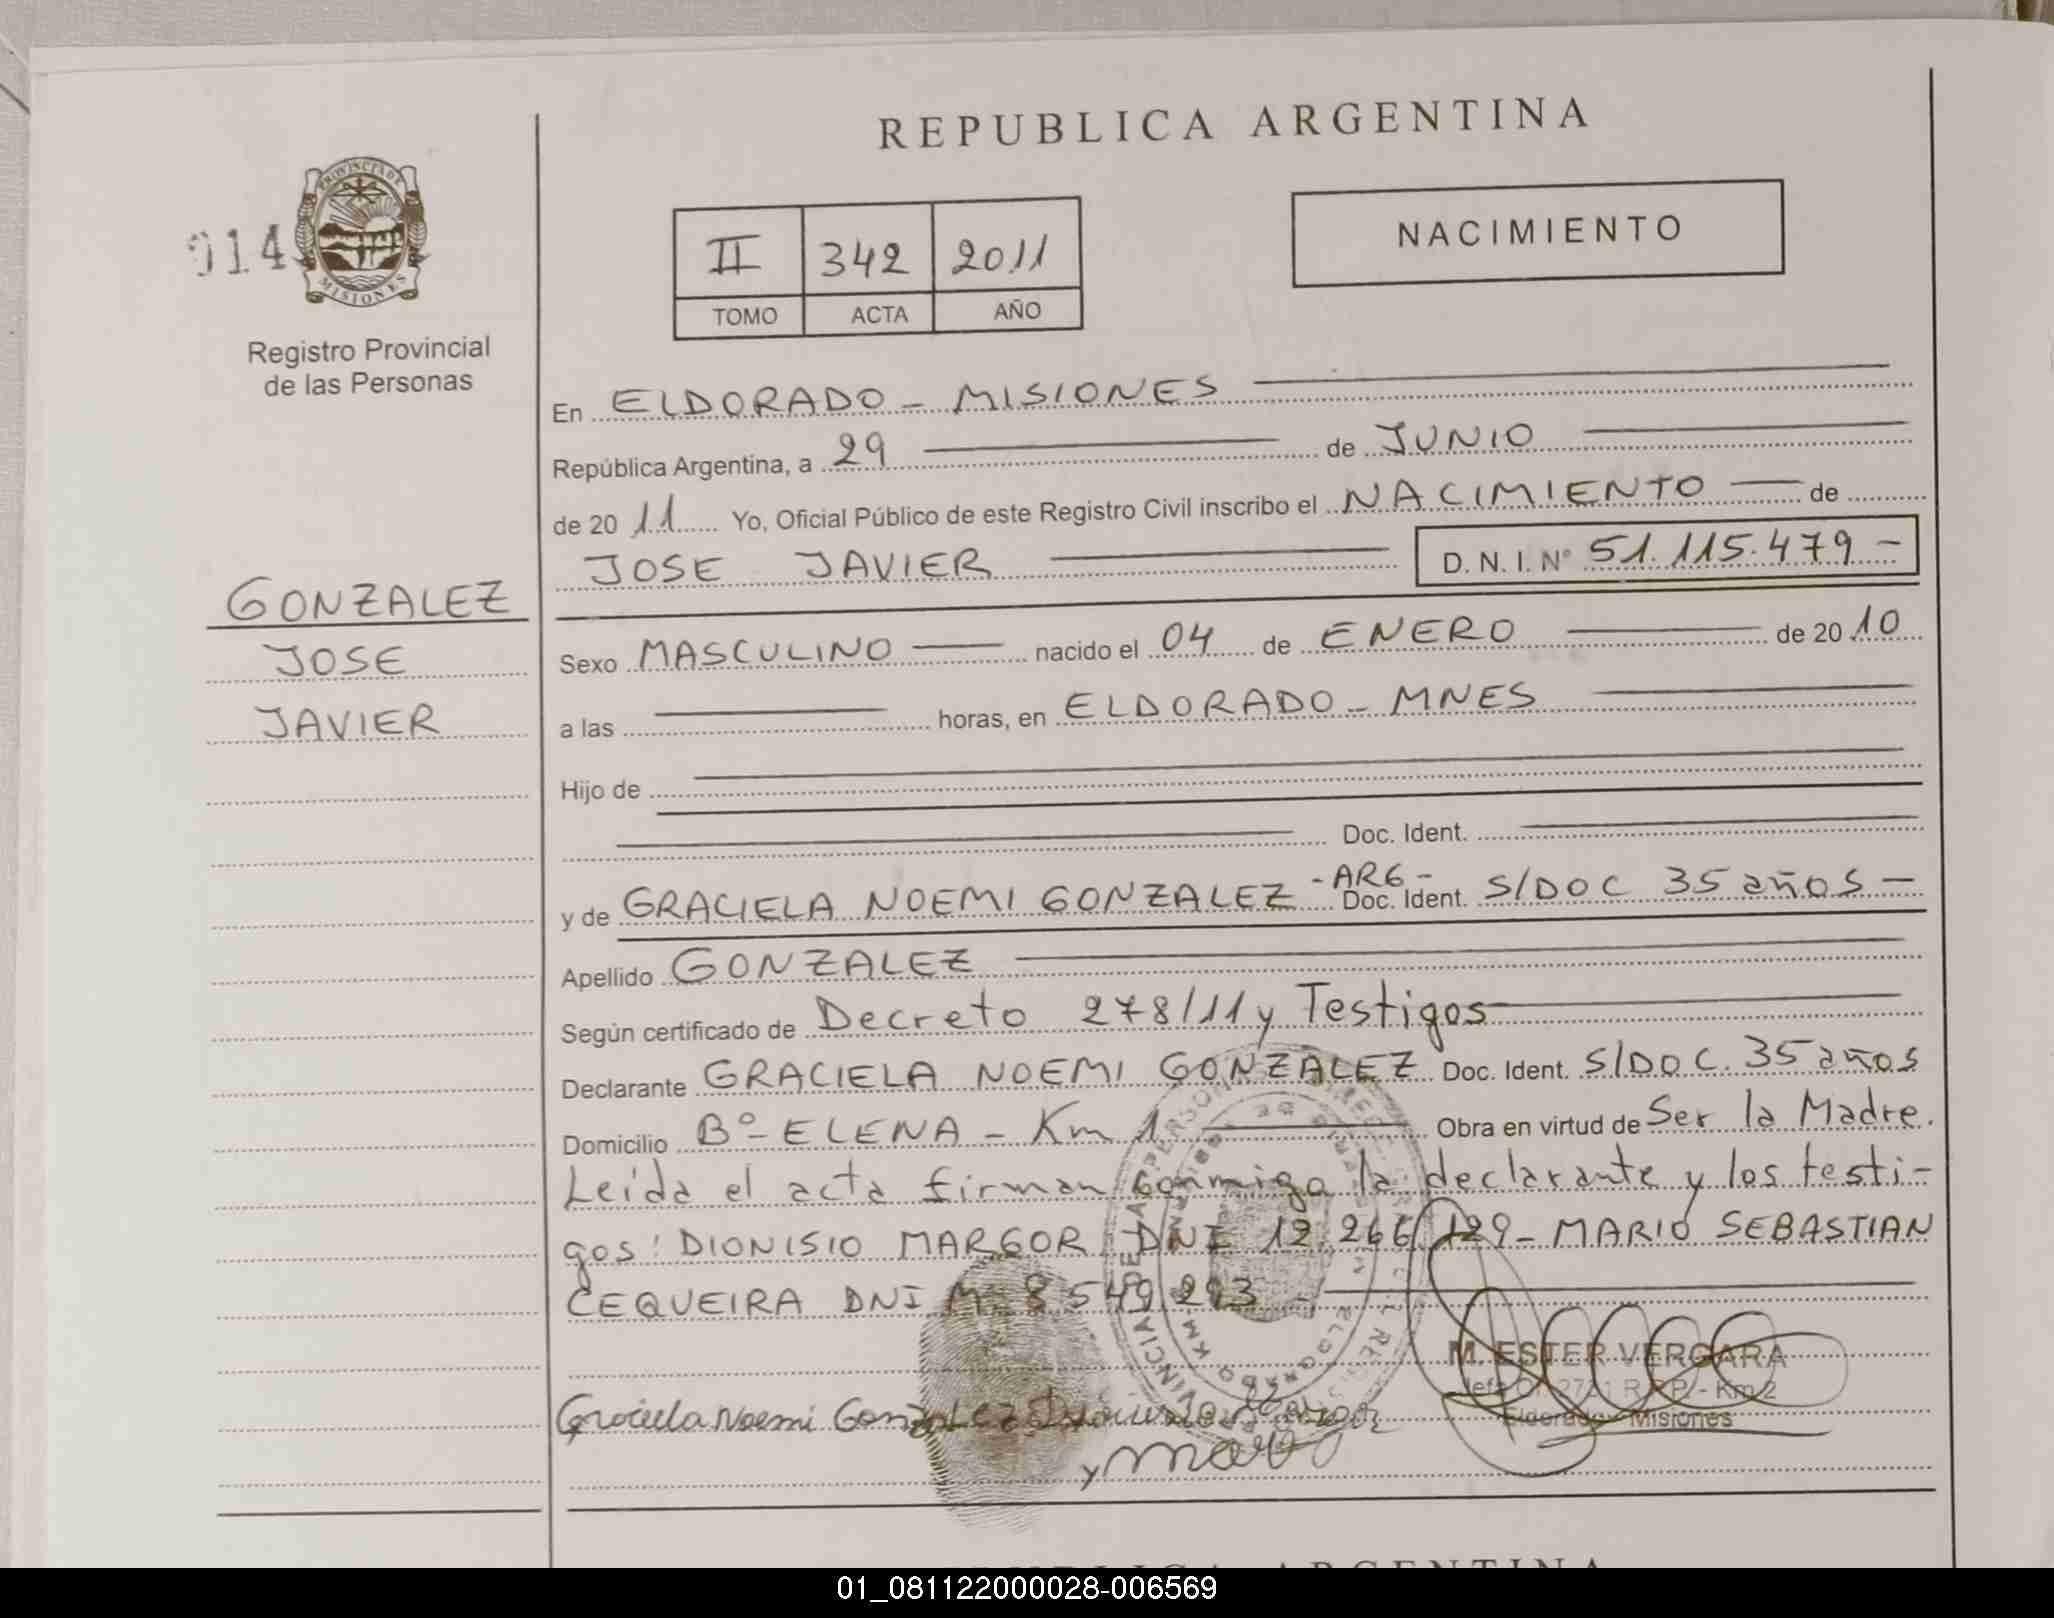 REPUBLICA ARGENTINA
014
PROVINCIA DE
MISIONES
Registro Provincial
de las Personas
II 342 2011
TOMO ACTA AÑO
NACIMIENTO
En ELDORADO - MISIONES
República Argentina, a 29 de JUNIO
de 20 11 Yo, Oficial Público de este Registro Civil inscribo el NACIMIENTO de
JOSE JAVIER D. N. I. Nº 51.115.479 -
GONZALEZ
JOSE
JAVIER
Sexo MASCULINO nacido el 04 de ENERO de 20 10
a las horas, en ELDORADO - MNES
Hijo de
Doc. Ident.
y de GRACIELA NOEMI GONZALEZ - ARG - Doc. Ident. S/DOC 35 años -
Apellido GONZALEZ
Según certificado de Decreto 278/11 y Testigos
Declarante GRACIELA NOEMI GONZALEZ Doc. Ident. S/DOC. 35 años
Domicilio Bº - ELENA - Km 1 Obra en virtud de Ser la Madre.
Leída el acta firman conmigo la declarante y los testi-
gos: DIONISIO MARGOR DNI 12.266.129 - MARIO SEBASTIAN
CEQUEIRA DNI M 8.549.293 -
M. ESTER VERGARA
Jefe Of. 2721 R.P.P. - Km 2
Eldorado - Misiones
Graciela Noemi Gonzalez
y mario
REPUBLICA ARGENTINA
01_081122000028-006569